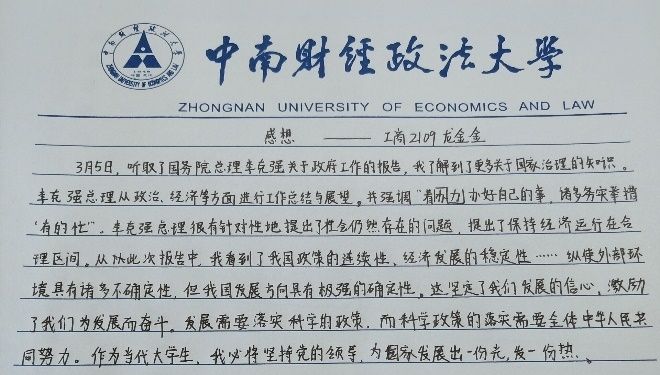 中南财经政法大学
ZHONGNAN UNIVERSITY OF ECONOMICS AND LAW
感想 —— 工商2109 龙金金
3月5日,听取了国务院总理李克强关于政府工作的报告,我了解到了更多关于国家治理的知识。
李克强总理从政治、经济等方面进行工作总结与展望。并强调“着力办好自己的事,诸多务实举措
‘有的忙’”。李克强总理很有针对性地提出了社会仍然存在的问题,提出了保持经济运行在合
理区间。从此次报告中,我看到了我国政策的连续性、经济发展的稳定性……纵使外部环
境具有诸多不确定性,但我国发展方向具有极强的确定性。这坚定了我们发展的信心,激励
了我们为发展而奋斗。发展需要落实科学的政策,而科学政策的落实需要全体中华人民共
同努力。作为当代大学生,我必将坚持党的领导,为国家发展出一份光,发一份热。